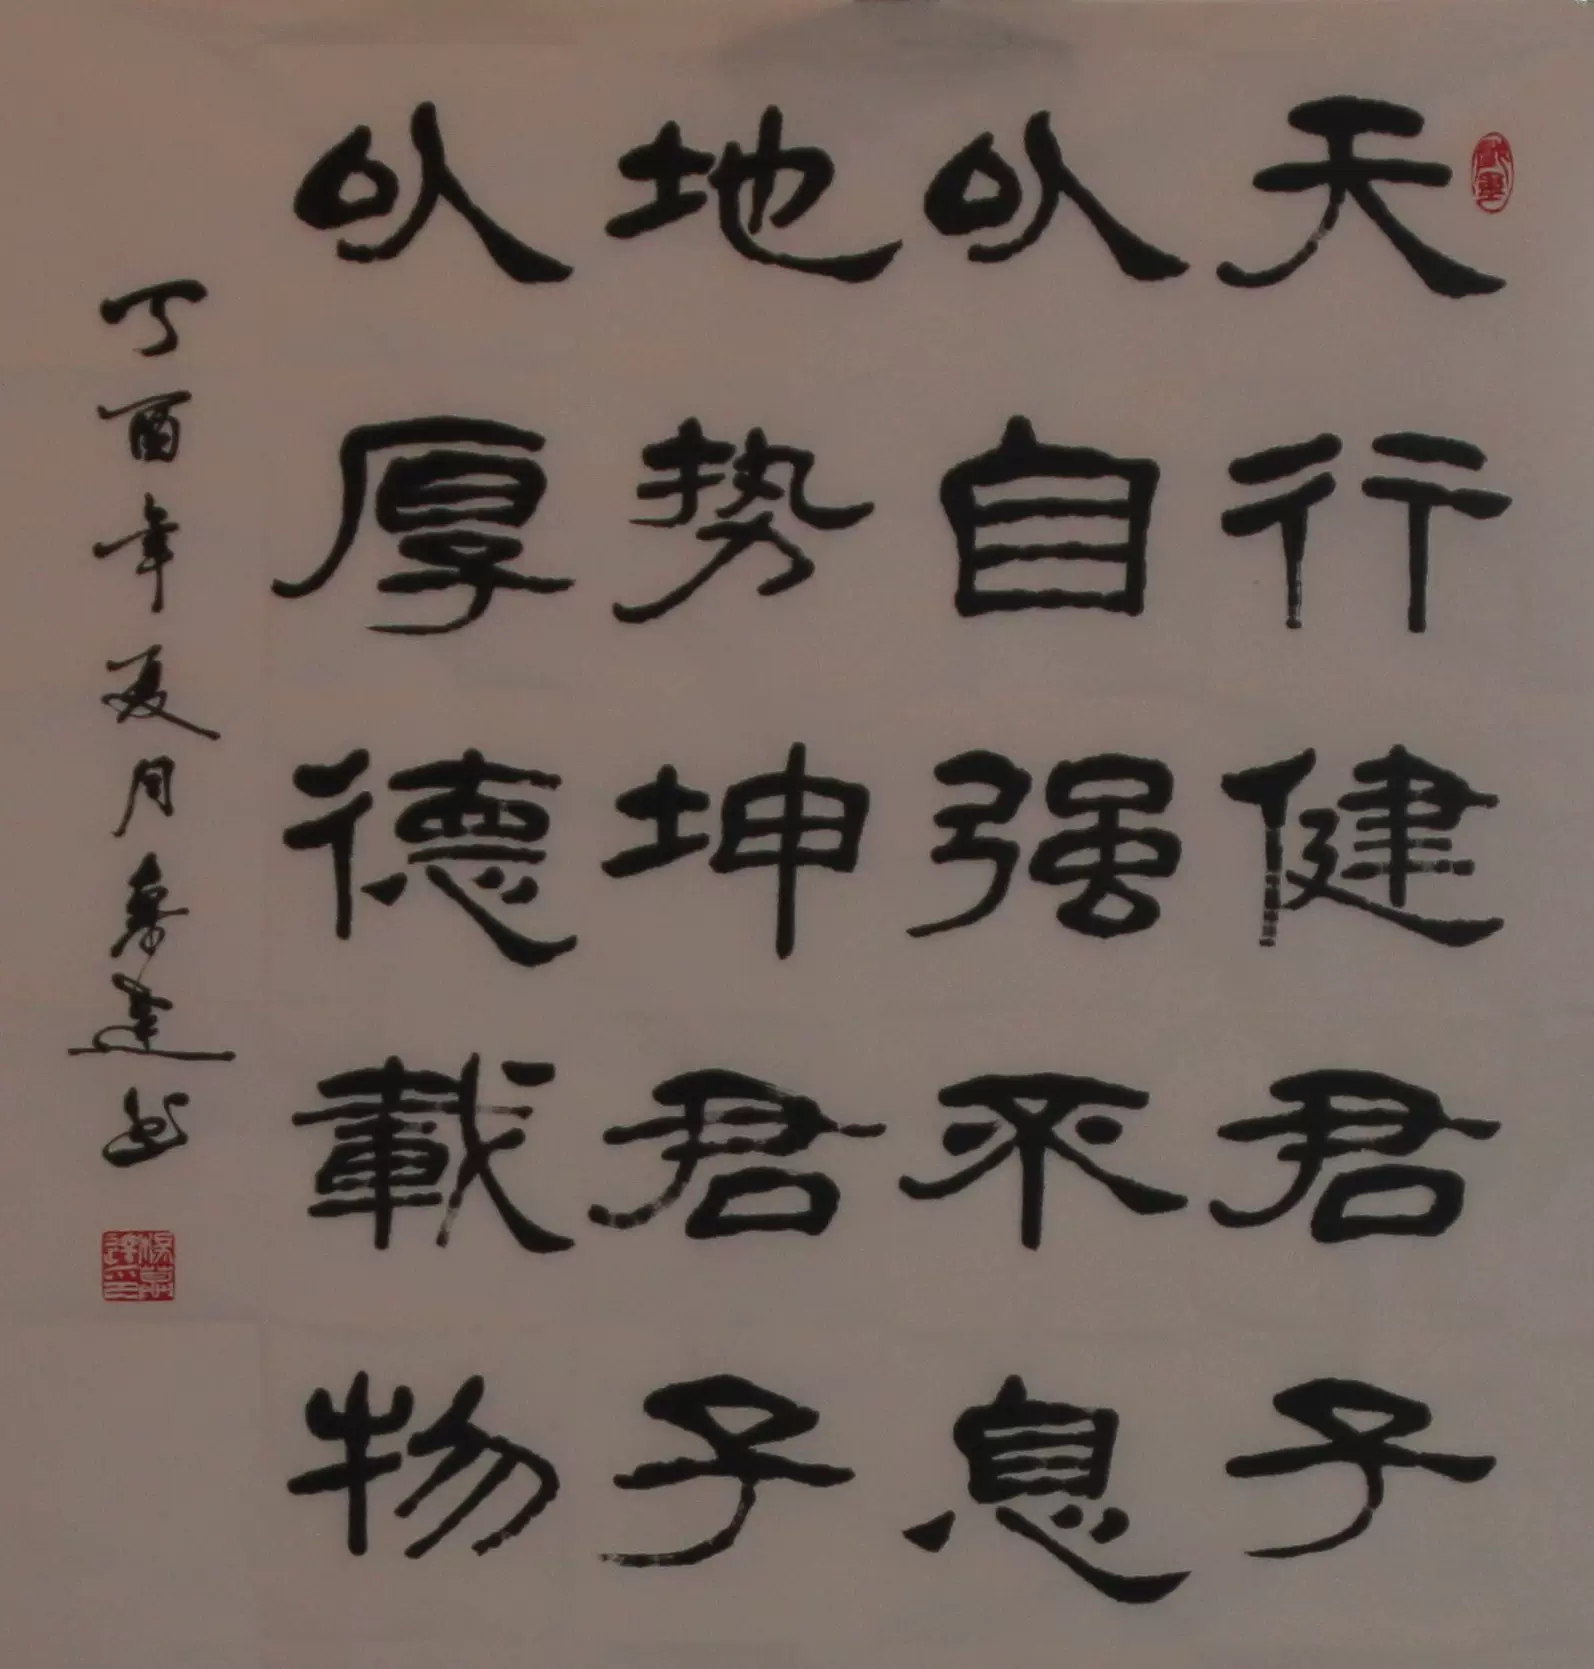 天行健君子
以自强不息
地势坤君子
以厚德載物
丁酉年夏月慕達书